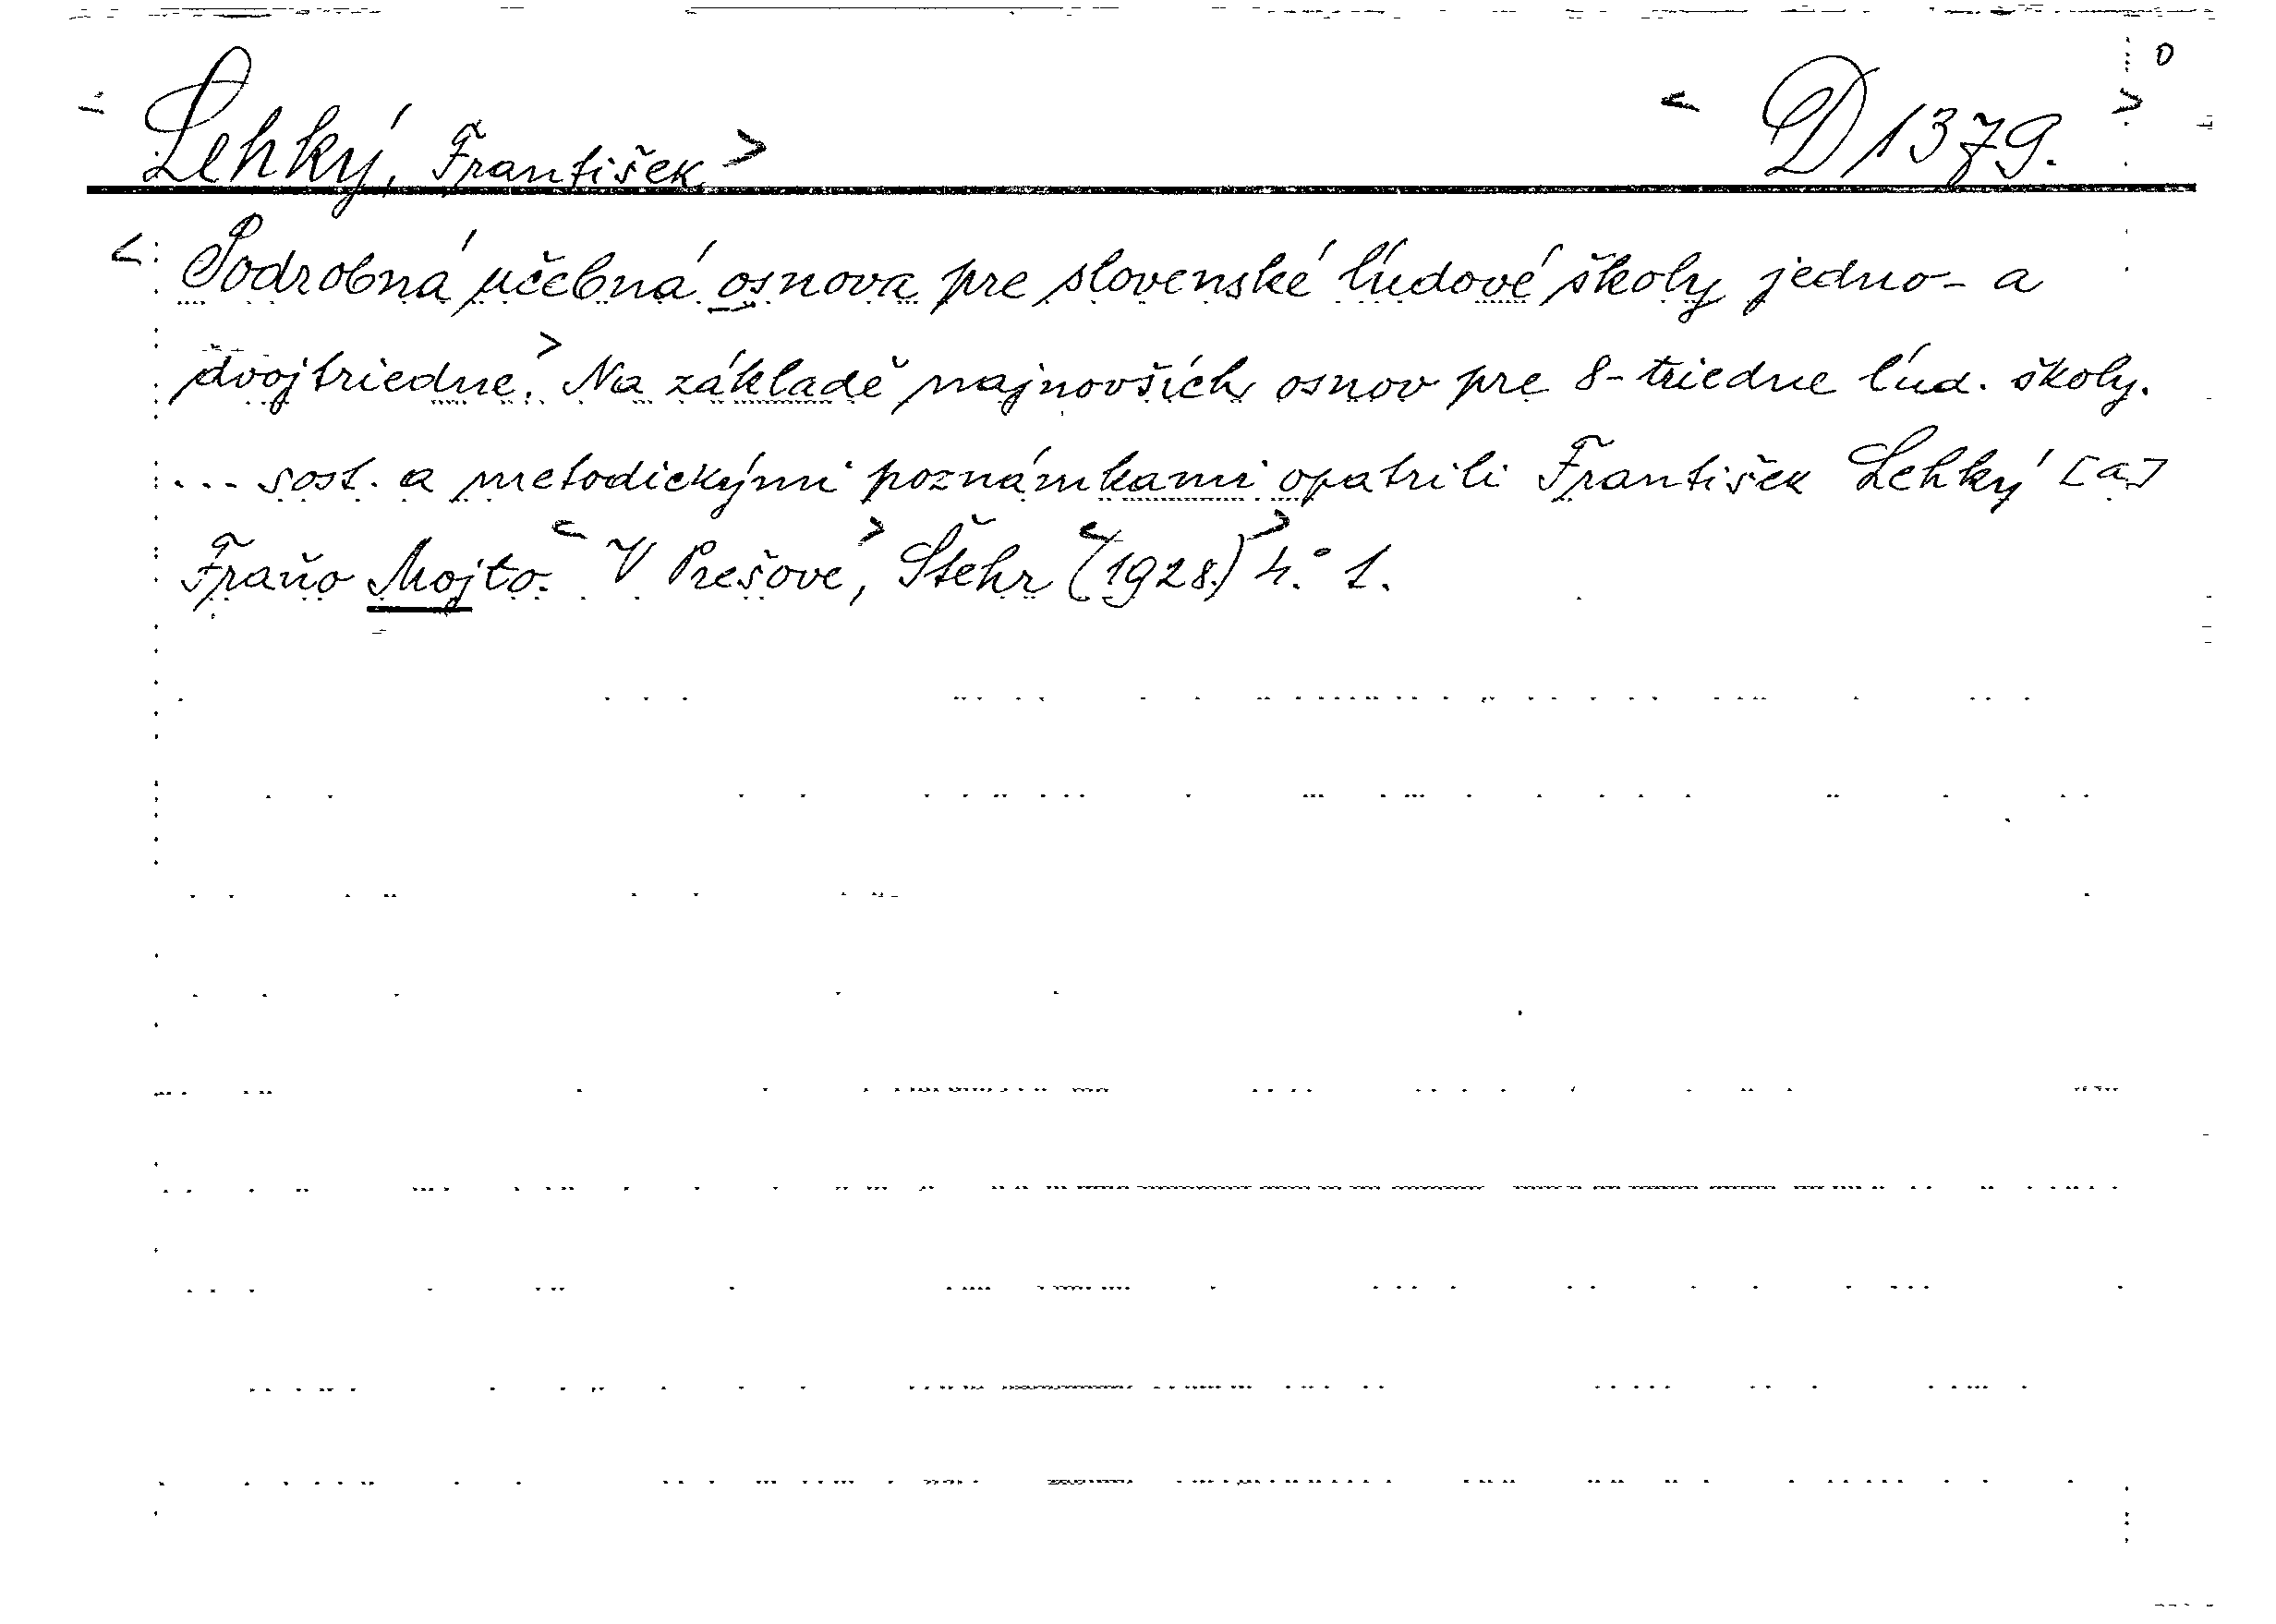 < Lehký, František > < D 1379. > 0
< Podrobná učebná osnova pre slovenské ľudové školy jedno- a
dvojtriedne. > Na základě najnovších osnov pre 8-triedne ľud. školy.
... sost. a metodickými poznámkami opatrili František Lehký [a]
Fraňo Mojto. < V Prešove >, Štehr < (1928.) > 4.° 1.